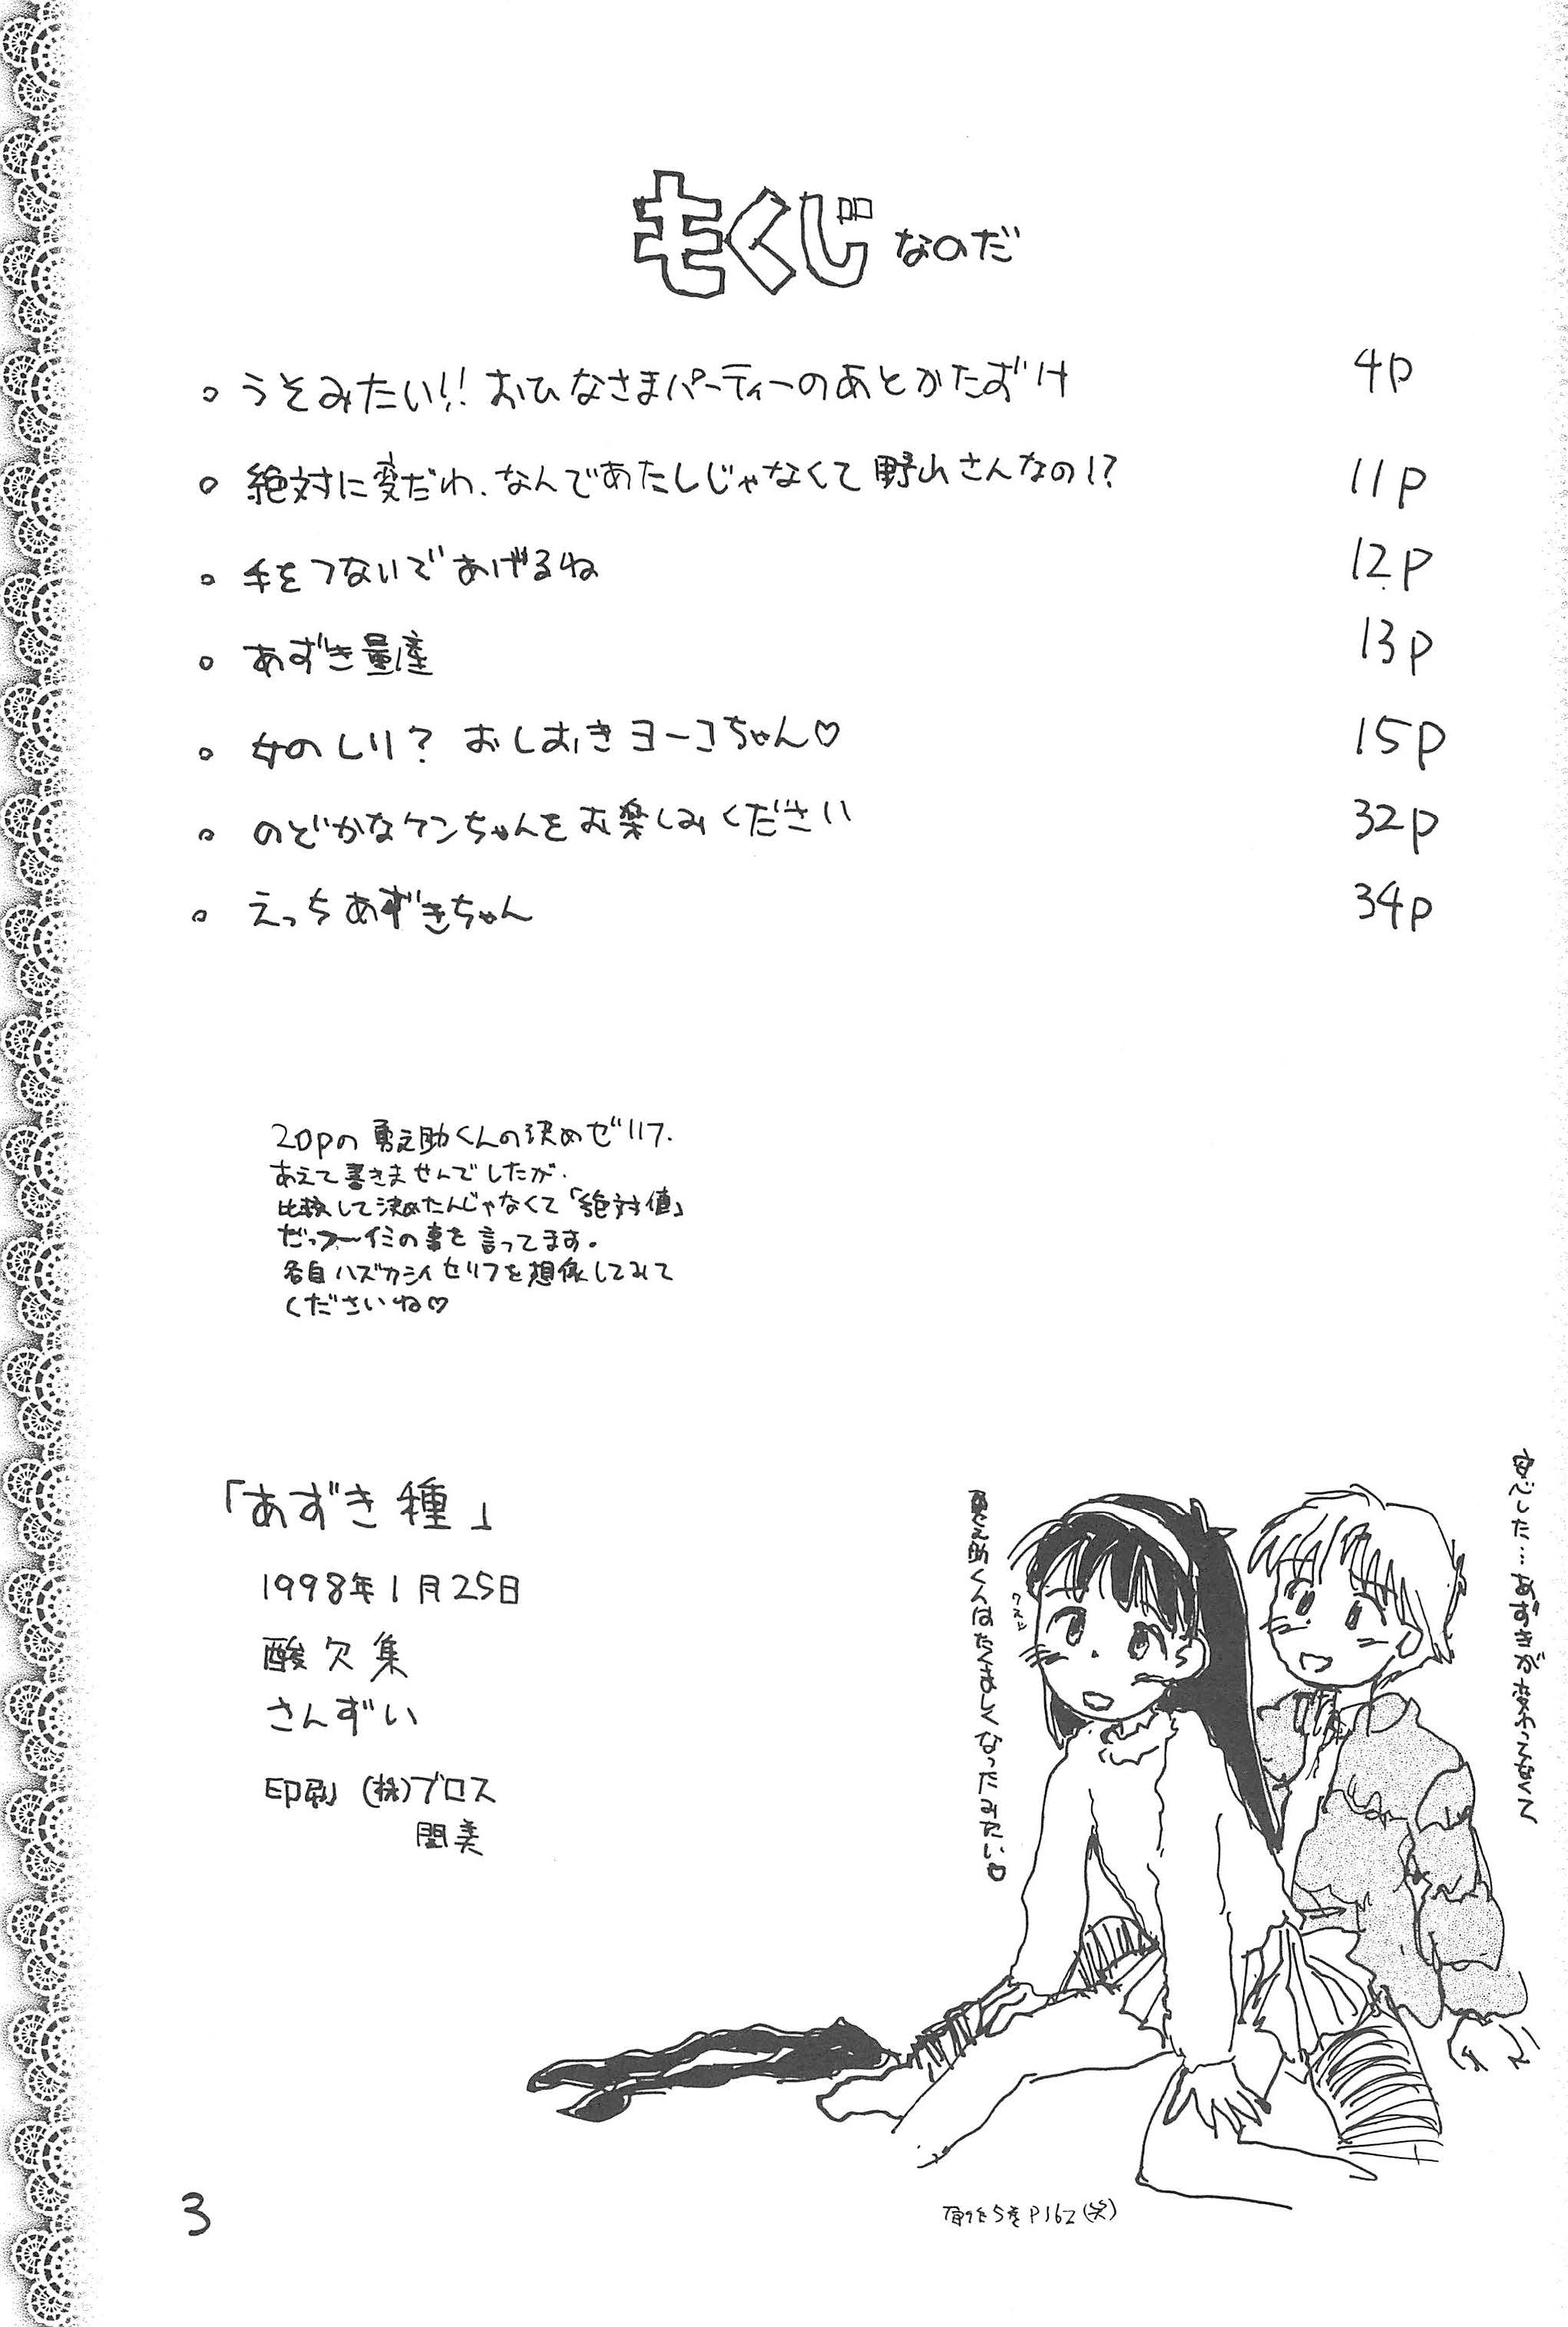 もくじ なのだ
。うそみたい!! おひなさまパーティーのあとかたずけ 4p
。絶対に変だわ、なんであたしじゃなくて野山さんなの!? 11p
。手をつないであげるね 12p
。あずき量産 13p
。女のしり? おしおきヨーコちゃん♡ 15p
。のどかなケンちゃんをお楽しみください 32p
。えっちあずきちゃん 34p
20pの勇之助くんの決めゼリフ、
あえて書きませんでしたが、
比較して決めたんじゃなくて「絶対値」
だっつーイミの事を言ってます。
各自ハズカシイセリフを想像してみて
くださいね♡
安心した…あずきが変わってなくて
勇之助くんはたくましくなったみたい♡
クスッ
「あずき種」
1998年1月25日
酸欠集
さんずい
印刷 (株)ブロス
5巻P162(笑)
3